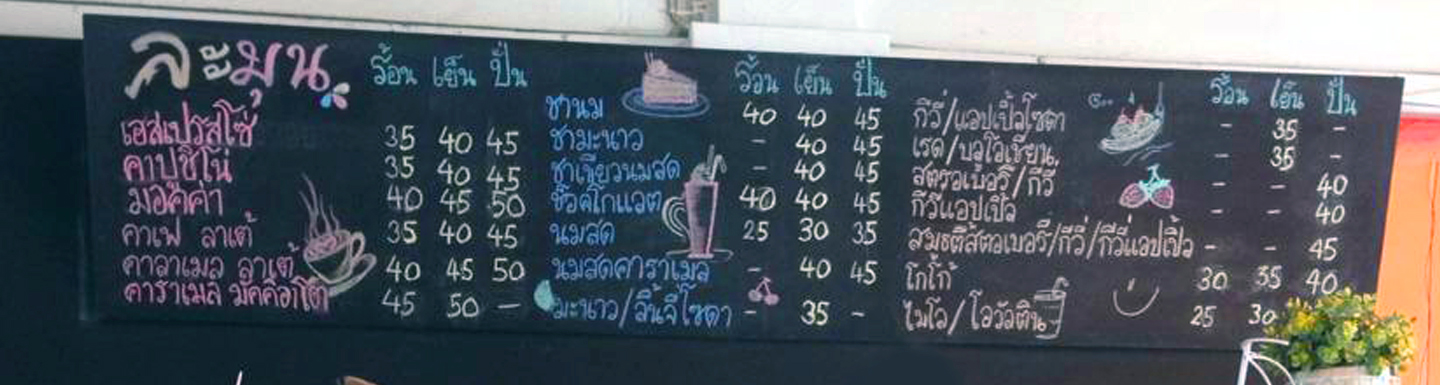 ละมุน ร้อน เย็น ปั่น
เอสเปรสโซ่ 35 40 45
คาปูชิโน่ 35 40 45
มอคค่า 40 45 50
คาเฟ่ ลาเต้ 35 40 45
คาลาเมล ลาเต้ 40 45 50
คาราเมล มัคคิอาโต 45 50 -
ร้อน เย็น ปั่น
ชานม 40 40 45
ชามะนาว - 40 45
ชาเขียวนมสด - 40 45
ช็อคโกแลต 40 40 45
นมสด 25 30 35
นมสดคาราเมล - 40 45
มะนาว/ลิ้นจี่โซดา - 35 -
ร้อน เย็น ปั่น
กีวี่/แอปเปิ้ลโซดา - 35 -
เรด/บลูโอเชี่ยน - 35 -
สตรอเบอรี่/กีวี่ - - 40
กีวี่แอปเปิ้ล - - 40
สมูตตี้สตอเบอรี่/กีวี่/กีวี่แอปเปิ้ล - - 45
โกโก้ 30 35 40
ไมโล/โอวัลติน 25 30